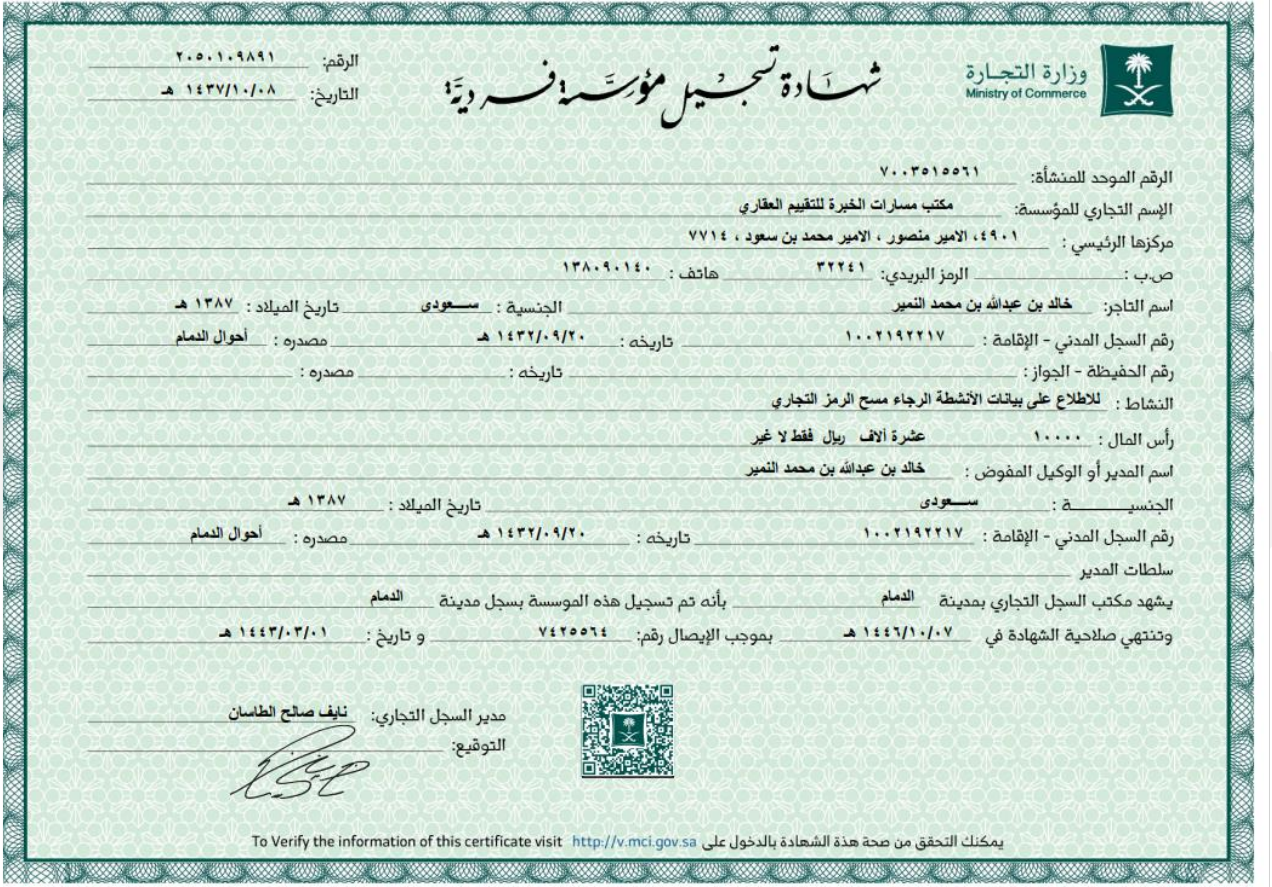 وزارة التجارة
Ministry of Commerce
شهادة تسجيل مؤسسة فردية
الرقم: ٢٠٥٠١٠٩٨٩١
التاريخ: ١٤٣٧/١٠/٠٨ هـ
الرقم الموحد للمنشأة: ٧٠٠٣٥١٥٥٦١
الإسم التجاري للمؤسسة: مكتب مسارات الخبرة للتقييم العقاري
مركزها الرئيسي : ٤٩٠١، الامير منصور ، الامير محمد بن سعود ، ٧٧١٤
ص.ب : الرمز البريدي: ٣٢٢٤١ هاتف : ١٣٨٠٩٠١٤٠
اسم التاجر: خالد بن عبدالله بن محمد النمير الجنسية : ســعودى تاريخ الميلاد : ١٣٨٧ هـ
رقم السجل المدني - الإقامة : ١٠٠٢١٩٢٢١٧ تاريخه : ١٤٣٢/٠٩/٢٠ هـ مصدره : أحوال الدمام
رقم الحفيظة - الجواز : تاريخه : مصدره :
النشاط : للاطلاع على بيانات الأنشطة الرجاء مسح الرمز التجاري
رأس المال : ١٠٠٠٠ عشرة آلاف ريال فقط لا غير
اسم المدير أو الوكيل المفوض : خالد بن عبدالله بن محمد النمير
الجنسيــــــة : ســعودى تاريخ الميلاد : ١٣٨٧ هـ
رقم السجل المدني - الإقامة : ١٠٠٢١٩٢٢١٧ تاريخه : ١٤٣٢/٠٩/٢٠ هـ مصدره : أحوال الدمام
سلطات المدير
يشهد مكتب السجل التجاري بمدينة الدمام بأنه تم تسجيل هذه الموسسة بسجل مدينة الدمام
وتنتهي صلاحية الشهادة في ١٤٤٦/١٠/٠٧ هـ بموجب الإيصال رقم: ٧٤٢٥٥٦٤ و تاريخ : ١٤٤٣/٠٣/٠١ هـ
مدير السجل التجاري: نايف صالح الطاسان
التوقيع:
يمكنك التحقق من صحة هذة الشهادة بالدخول على To Verify the information of this certificate visit http://v.mci.gov.sa